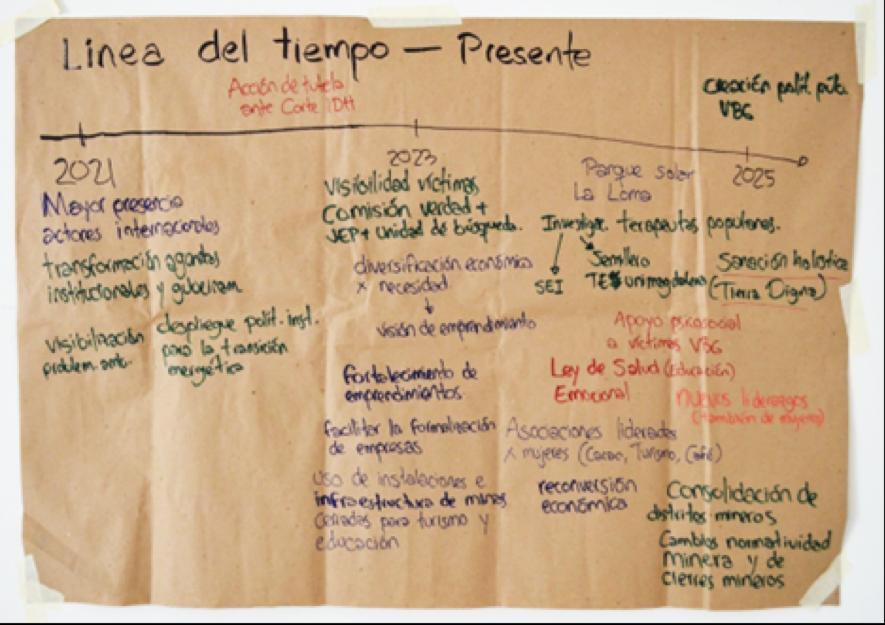 Linea del tiempo — Presente
Acción de tutela
ante Corte IDH
Creación polít. púb.
VBG
2021
2023
2025
Mayor presencia
actores internacionales
transformación agendas
institucionales y
visibilización
problem. amb.
despliegue polit. inst.
para la transición
energética
Visibilidad víctimas
Comisión verdad +
JEP + Unidad de búsqueda.
diversificación económica
x necesidad
visión de emprendimiento
fortalecimiento de
emprendimientos
facilitar la formalización
de empresas
uso de instalaciones e
infraestructura de minas
cerradas para turismo y
educación
Parque solar
La Loma
Investigar. terapeutas populares.
SEI
Semillero
unimagdalena
Sanación holística
(Tierra Digna)
Apoyo psicosocial
a víctimas VBG
Ley de Salud (Educación)
Emocional
nuevos liderazgos
(también de mujeres)
Asociaciones lideradas
x mujeres (Cacao, Turismo, Café)
reconversión
económica
Consolidación de
distritos mineros
Cambios normatividad
minera y de
cierres mineros